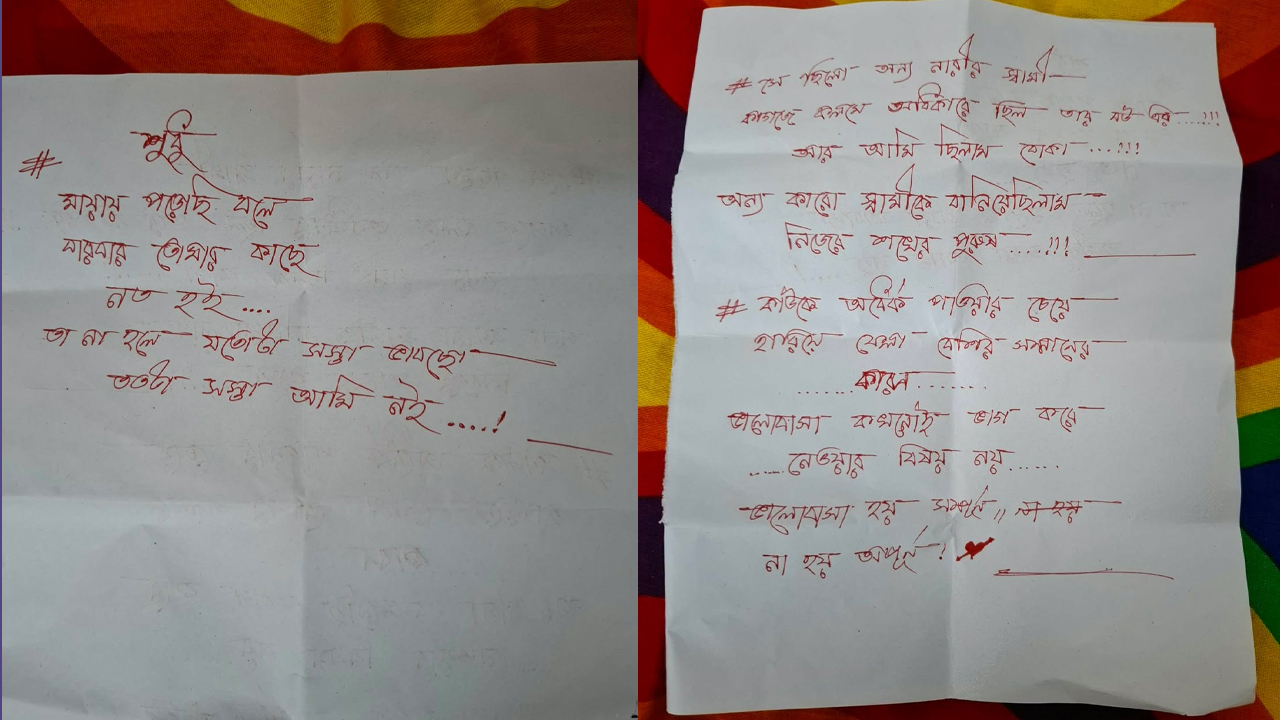 শুধু
# মায়ায় পড়েছি বলে
বারবার তোমার কাছে
নত হই....
তা না হলে যতোটা সস্তা ভাবছো
ততটা সস্তা আমি নই.....!
# সে ছিলো অন্য নারীর স্বামী
কাগজে কলমে অধিকারে ছিল তার বউ এর....!!!
আর আমি ছিলাম বোকা....!!!
অন্য কারো স্বামীকে বানিয়েছিলাম
নিজের শখের পুরুষ.....!!!
# কাউকে অর্ধেক পাওয়ার চেয়ে
হারিয়ে ফেলা বেশির সম্মানের
......কারন.......
ভালোবাসা কখনোই ভাগ করে
......নেওয়ার বিষয় নয়......
ভালোবাসা হয় সম্পূর্ণ,, না হয়
না হয় অপূর্ণ !